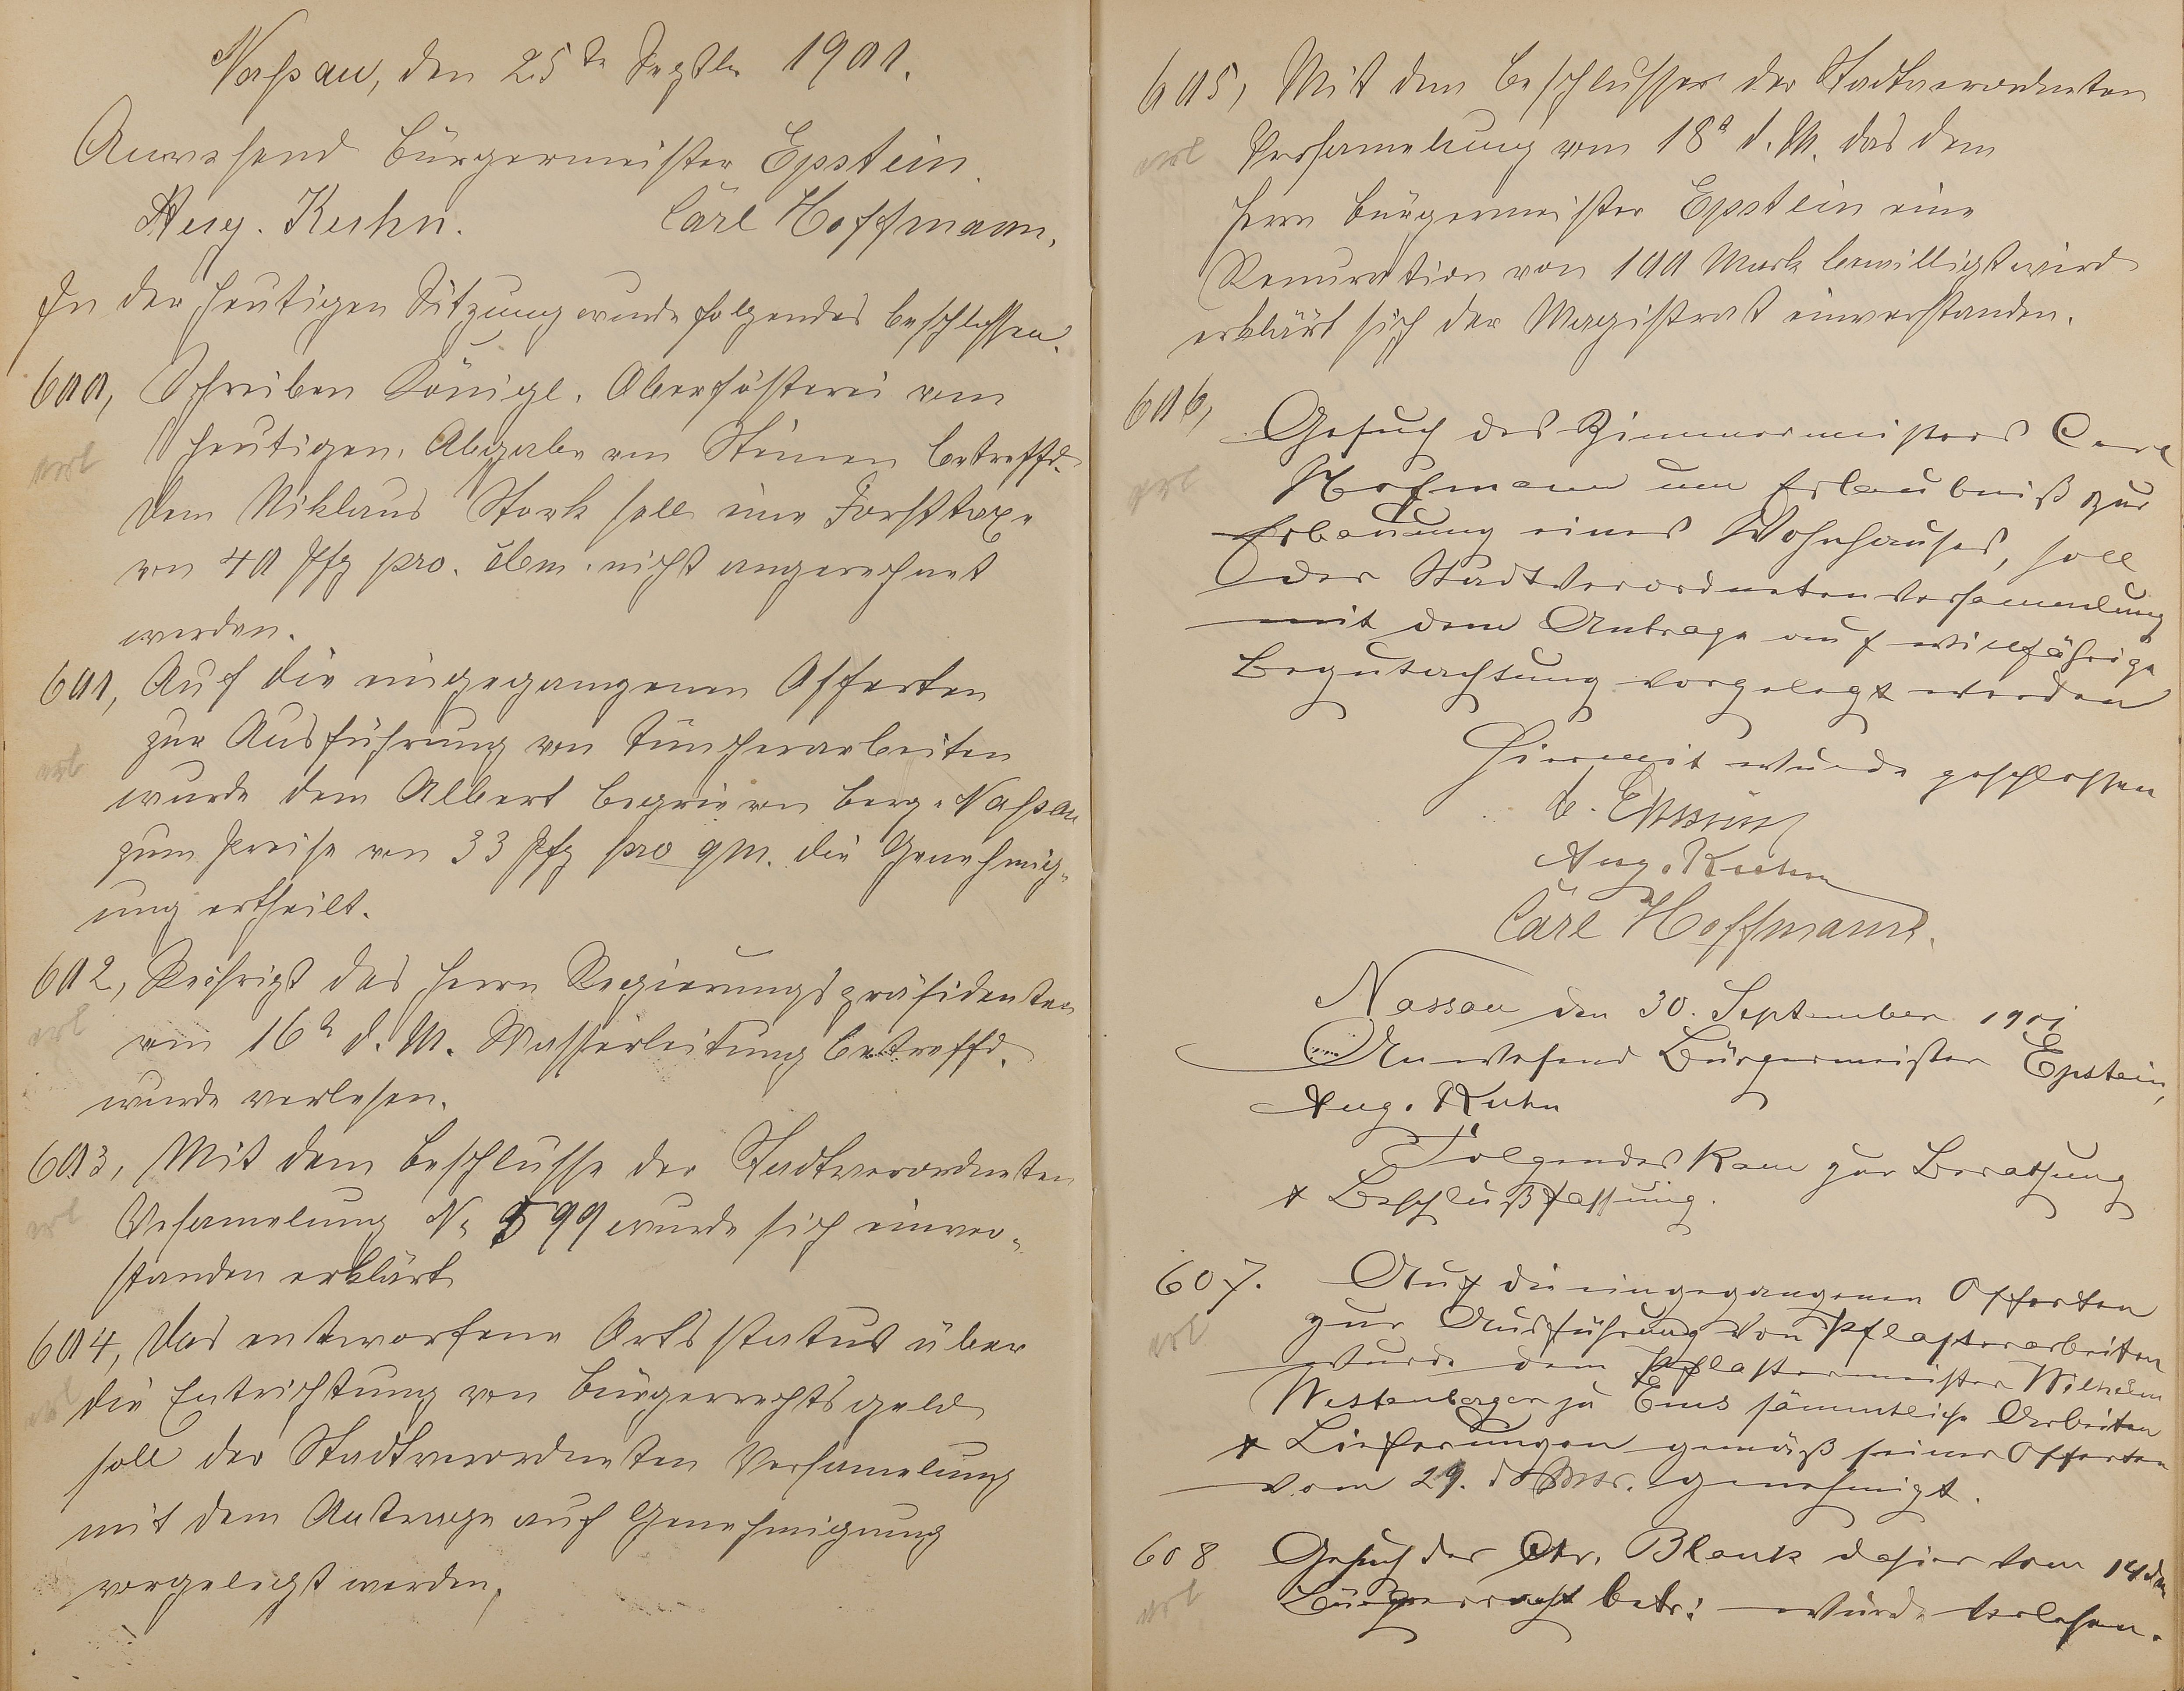 Naßau, den 25te Septbr 1901.
Anwesend Bürgermeister Epstein.
Aug. Kuhn. Carl Hoffmann.
In der heutigen Sitzung wurde folgendes beschlossen.
600, Schreiben Königl. Oberförsterei vom
vorl
heutigen, Abgabe von Steinen betreffd.
Dem Niklaus Stork soll eine Forsttaxe
von 40 Pfg pro. cbm. nicht angerechnet
werden.
601, Auf die eingegangenen Offerten
zur Ausführung von Tüncherarbeiten
vorl
wurde dem Albert von Berg-Naßau
zum Preise von 33 Pfg pro qm. die Genehmig-
ung ertheilt.
602, des Herrn Regierungspräsidenten
vorl
vom 16t d. M. Wasserleitung betreffd.
wurde verlesen.
603, Mit dem Beschlusse der Stadtverordneten
vorl
Versamelung No 599 wurde sich einver-
standen erklärt
604, Das entworfene Ortsstatut über
vorl
die Entrichtung von Bürgerrechtsgeld
soll der Stadtverordneten Versamelung
mit dem Antrage auf Genehmigung
vorgelegt werden,
605, Mit dem Beschlusse der Stadtverordneten
vorl
Versamelung vom 18t d. M. das dem
Herrn Bürgermeister Epstein eine
Renumration von 100 Mark bewilligt wird
erklärt sich der Magistrat einverstanden.
606,
Gesuch des Zimmermeisters Carl
vorl
Hofmann um Erlaubniß zur
Erbauung eines Wohnhauses, soll
der Stadtverordneten Versammlung
mit dem Antrage auf willfährige
Begutachtung vorgelegt werden
Hiermit wurde geschlossen
Epstein
Aug. Kuhn
Carl Hoffmann.
Nassau den 30. September 1901
Anwesend Bürgermeister Epstein,
Aug. Kuhn
Folgendes kam zur Berathung
& Beschlußfassung.
607. Auf die eingegangenen Offerten
vorl
zur Ausführung von Pflasterarbeiten
wurde dem Pflastermeister Wilhelm
Westenberger zu Ems sämmtliche Arbeiten
& Lieferungen gemäß seiner Offerten
vom 29. ds Mts. genehmigt.
608 Gesuch des Chr. Blank dahier vom 14 dM
vorl
Bürgerrecht betr: wurde verlesen.